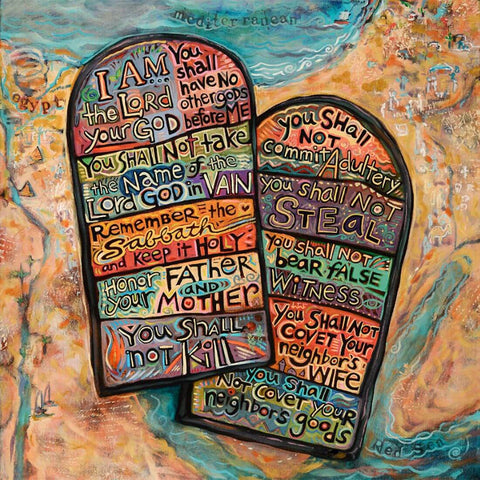 mediterranean
egypt
I AM
the LORD
your GOD
You
shall
have NO
other gods
before ME
You SHALL Not take
the Name of the
Lord GOD in VAIN
REMEMBER the
Sabbath
and keep it HOLY
Honor
your FATHER
AND
MOTHER
YOU SHALL
not Kill
you SHALL
NOT
commit Adultery
you shall NOT
STEAL
You shall NOT
bear FALSE
WITNESS
YOU SHALL NOT
COVET YOUR
neighbor's
WIFE
you Shall
NOT COVET YOUR
neighbors goods
red sea